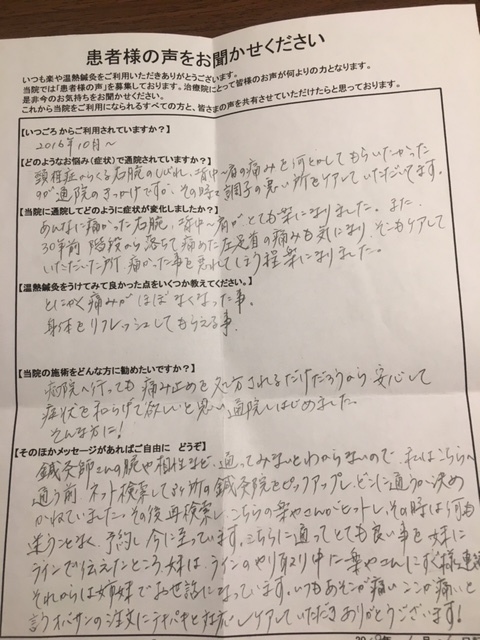 患者様の声をお聞かせください
いつも楽や温熱鍼灸をご利用いただきありがとうございます。
当院では「患者様の声」を募集しております。治療院にとって皆様のお声が何よりの力となります。
是非今のお気持ちをお聞かせください。
これから当院をご利用になられるすべての方と、皆さまの声を共有させていただけたらと思っております。
【いつごろからご利用されていますか?】
2016年10月~
【どのようなお悩み(症状)で通院されていますか?】
頚椎症からくる右腕のしびれ、背中~肩の痛みを何とかしてもらいたかった
のが通院のきっかけですが、その時々調子の悪い所をケアしていただいてます。
【当院に通院してどのように症状が変化しましたか?】
あんなに痛かった右腕、背中~肩がとても楽になりました。また、
30年前 階段から落ちて痛めた左足首の痛みも気になり、そこもケアして
いただいた所 痛かった事を忘れてしまう程楽になりました。
【温熱鍼灸をうけてみて良かった点をいくつか教えてください。】
とにかく痛みがほぼなくなった事。
身体をリフレッシュしてもらえる事。
【当院の施術をどんな方に勧めたいですか?】
病院へ行っても痛み止めを処方されるだけだろうから 安心して
症状を和らげて欲しいと思い通院しはじめました。
そんな方に!
【そのほかメッセージがあればご自由に どうぞ】
鍼灸師さんの腕や相性など、通ってみないとわからないので、私はこちらへ
通う前 ネット検索して3ヶ所の鍼灸院をピックアップし、どこに通うか決め
かねていました。その後再検索し、こちらの楽やさんがヒットし、その時は何も
迷うことなく、予約し今に至っています。こちらに通ってとても良い事を妹に
ラインで伝えたところ、妹は、ラインのやり取り中に楽やさんにすぐ様
それからは姉妹でお世話になっています。いつもあそこが痛いここが痛いと
言うオバサンの注文にテキパキと対応しケアしていただきありがとうございます!